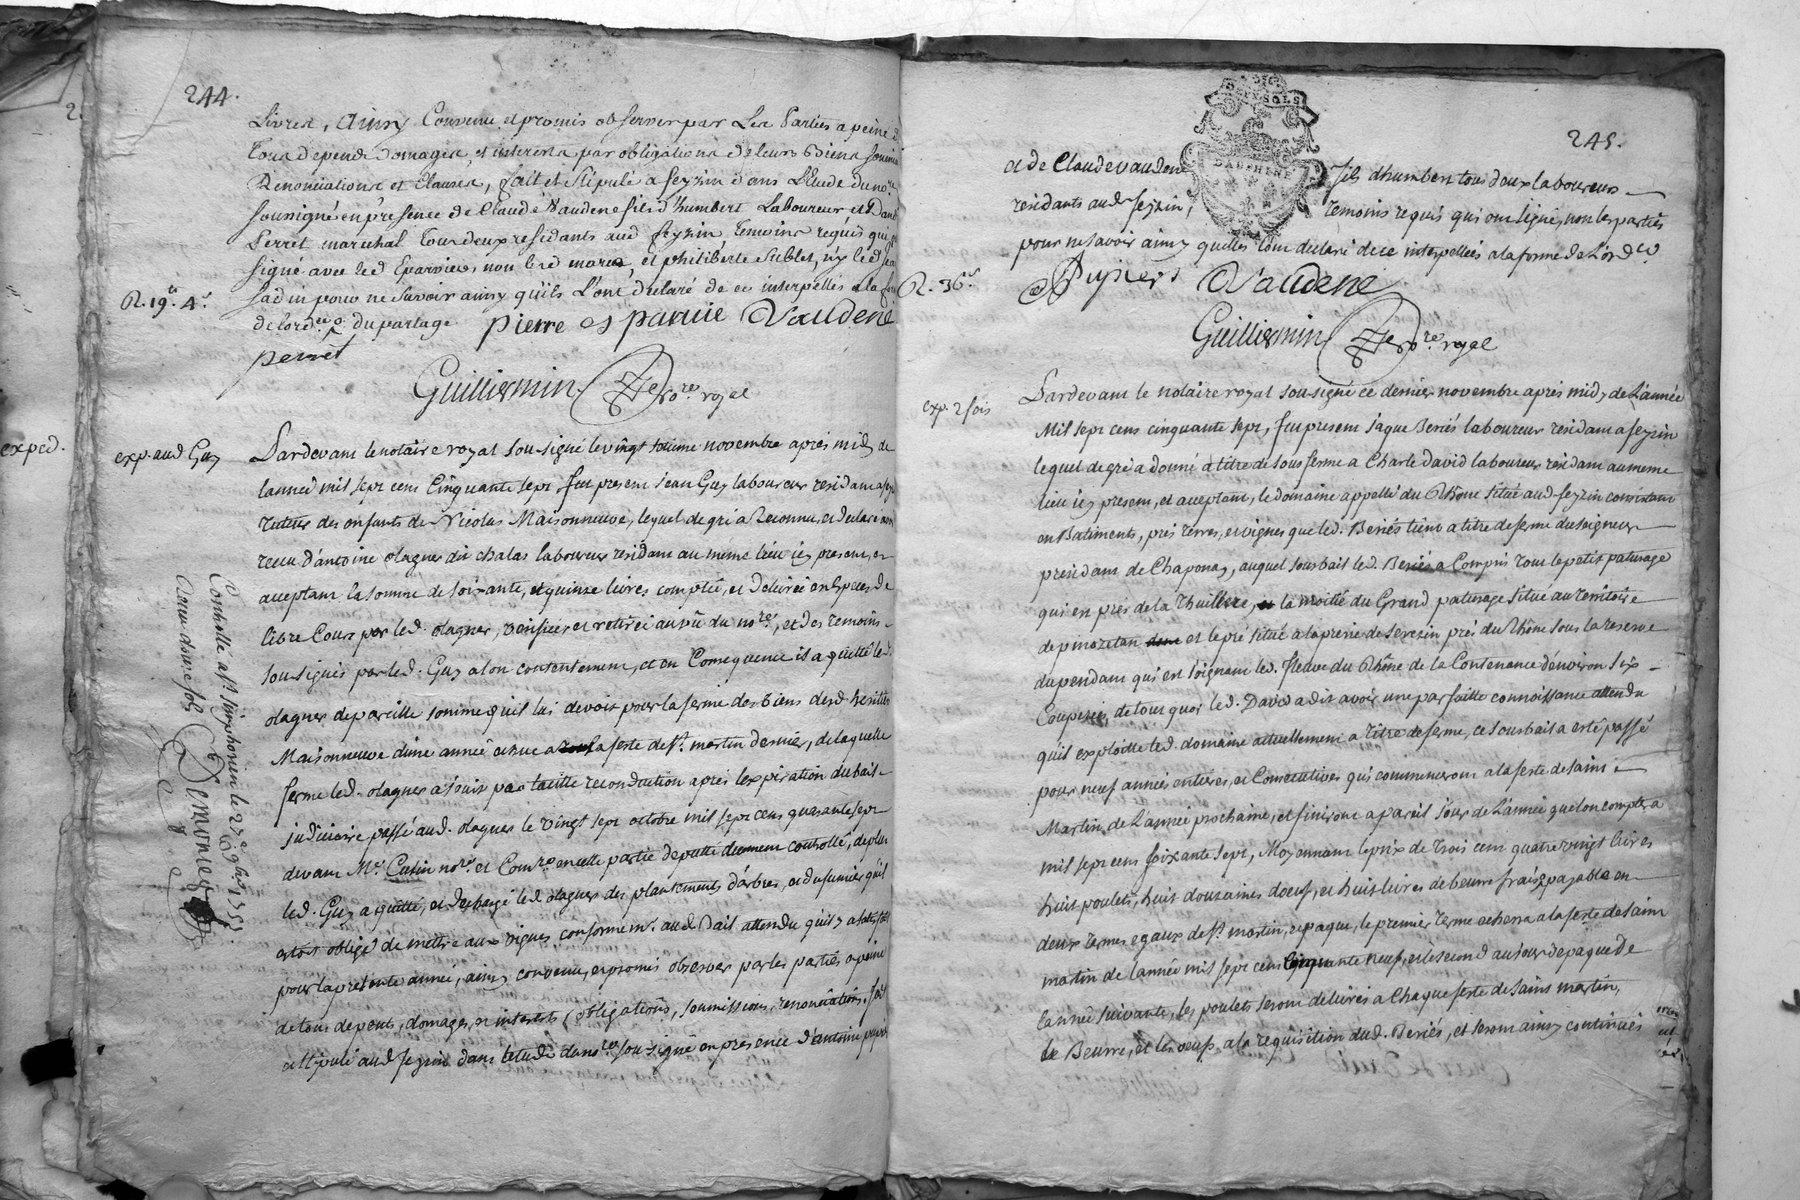 244.
Livres, Ainsy Convenu et promis observer par Les Parties a peine de
tous depends domages et interets, par obligations de leurs Biens soumiss
Renonciations et Clauses, fait et stipulé a seyzin dans L'Etude du nore
soussigné en presence de Claude Vaudene fils d'humbert Laboureur et
Perret marechal tous deux residants aud seyzin temoins requis qui
signé avec led Eparvier non led maria, et philiberte sublet, ny led
Jadin pour ne savoir ainsy qu'ils L'ont declaré de ce interpellés a la
de lord.ce du partage pierre esparvie Vaudene
R. 19.lt 4.s
perret
Guilliermin No.re royal
exped.
exp. aud Guy
Pardevant le notaire royal soussigné le vingt novembre après midy de
lannée mil sept cens Cinquante sept fut present jean Guy laboureur residant a
tuteur des enfants de Nicolas Maisonneuve, lequel de gré a Reconnu et declaré avoir
recu d'antoine olagner dit chalas laboureur residant au meme lieu icy present, et
acceptant la somme de soixante, et quinze livres comptée, et delivrée en Especes de
libre Cours par led. olagner, verifiée et retirée au vu du no.re, et des temoins
soussignés par led. Guy a son contentement, et en Consequence il a quitté led.
olagner de pareille somme qu'il lui devoit pour la ferme des biens desd heritiers
Maisonneuve d'une année echue a la feste de st. martin dernier, de laquelle
ferme led. olagner a jouir par tacitte reconduction après l'expiration du bail
judiciaire passé aud. olagner le vingt sept octobre mil sept cens quarante sept
devant Me. Catin no.re et Com.re en cette partie deputté duement controllé, de plus
led. Guy a quitté, et decharge led olagner des plantements d'arbres, et du fumier qu'il
etoit obligé de mettre aux vignes conformem.t aud Bail attendu qu'il y a satisfait
pour la presente année, ainsy convenu, et promis observer par les parties a peine
de tous depents, domages, et interests, obligations, soumissions, renonciations, fait
et stipulé aud seyzin dans letude du no.re soussigné en presence d'antoine
Controllé a st. simphorien le 27e 9bre 1757.
Recu douze sols Demoniey
245.
et de Claude vaudene fils d'humbert tous deux laboureurs
residants aud seyzin, temoins requis qui ont signé, non les parties
pour ne savoir ainsy quelles l'ont declaré de ce interpellées a la forme de L'ord.ce
R. 36.s
Vaudene
Guilliermin No.re royal
exp. 2 fois
Pardevant le notaire royal soussigné ce dernier novembre après midy de L'année
Mil sept cens cinquante sept, fut present jaque Beriés laboureur residant a seyzin
lequel de gré a donné a titre de sous ferme a Charle David laboureur residant au meme
lieu icy present, et acceptant, le domaine appellé du Rhône situé aud seyzin consistant
en Batiments, prés terres, et vignes que led. Beriés tient a titre de ferme du seigneur
president de Chaponay, auquel sousbail led. Beriés a Compris tous le petit paturage
qui en prés de la Thuilliere, la moitié du Grand paturage situé au territoire
de pinozetan et le pré situé a la prerie de serezin prés du Rhône sous la reserve
dependant qui en soignant led. fleuve du Rhône de la Contenance d'environ six
Couperées, de tous quoi led. David a dit avoir une parfaitte connoissance attendu
quil exploitte led. domaine actuellement a titre de ferme, ce sousbail a esté passé
pour neuf années entieres, et Consecutives qui commenceront a la feste de saint
Martin de l'année prochaine, et finiront a pareil jour de L'année que lon comptera
mil sept cens soixante sept, Moyennant le prix de trois cent quatre vingt livres
huit poulets, huit douzaines doeufs, et huit livres de beurre frais payable en
deux termes egaux de st. martin, et paque, le premier terme echerra a la feste de saint
martin de lannée mil sept cens Cinquante neuf, et le second au jour de paque de
lannée suivante, les poulets seront delivrés a Chaque feste de saint martin,
le Beurre, et les oeufs a la requisition dud. Beriés, et seront ainsy continués